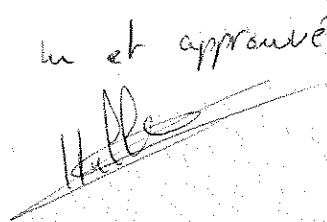 lu et approuvé